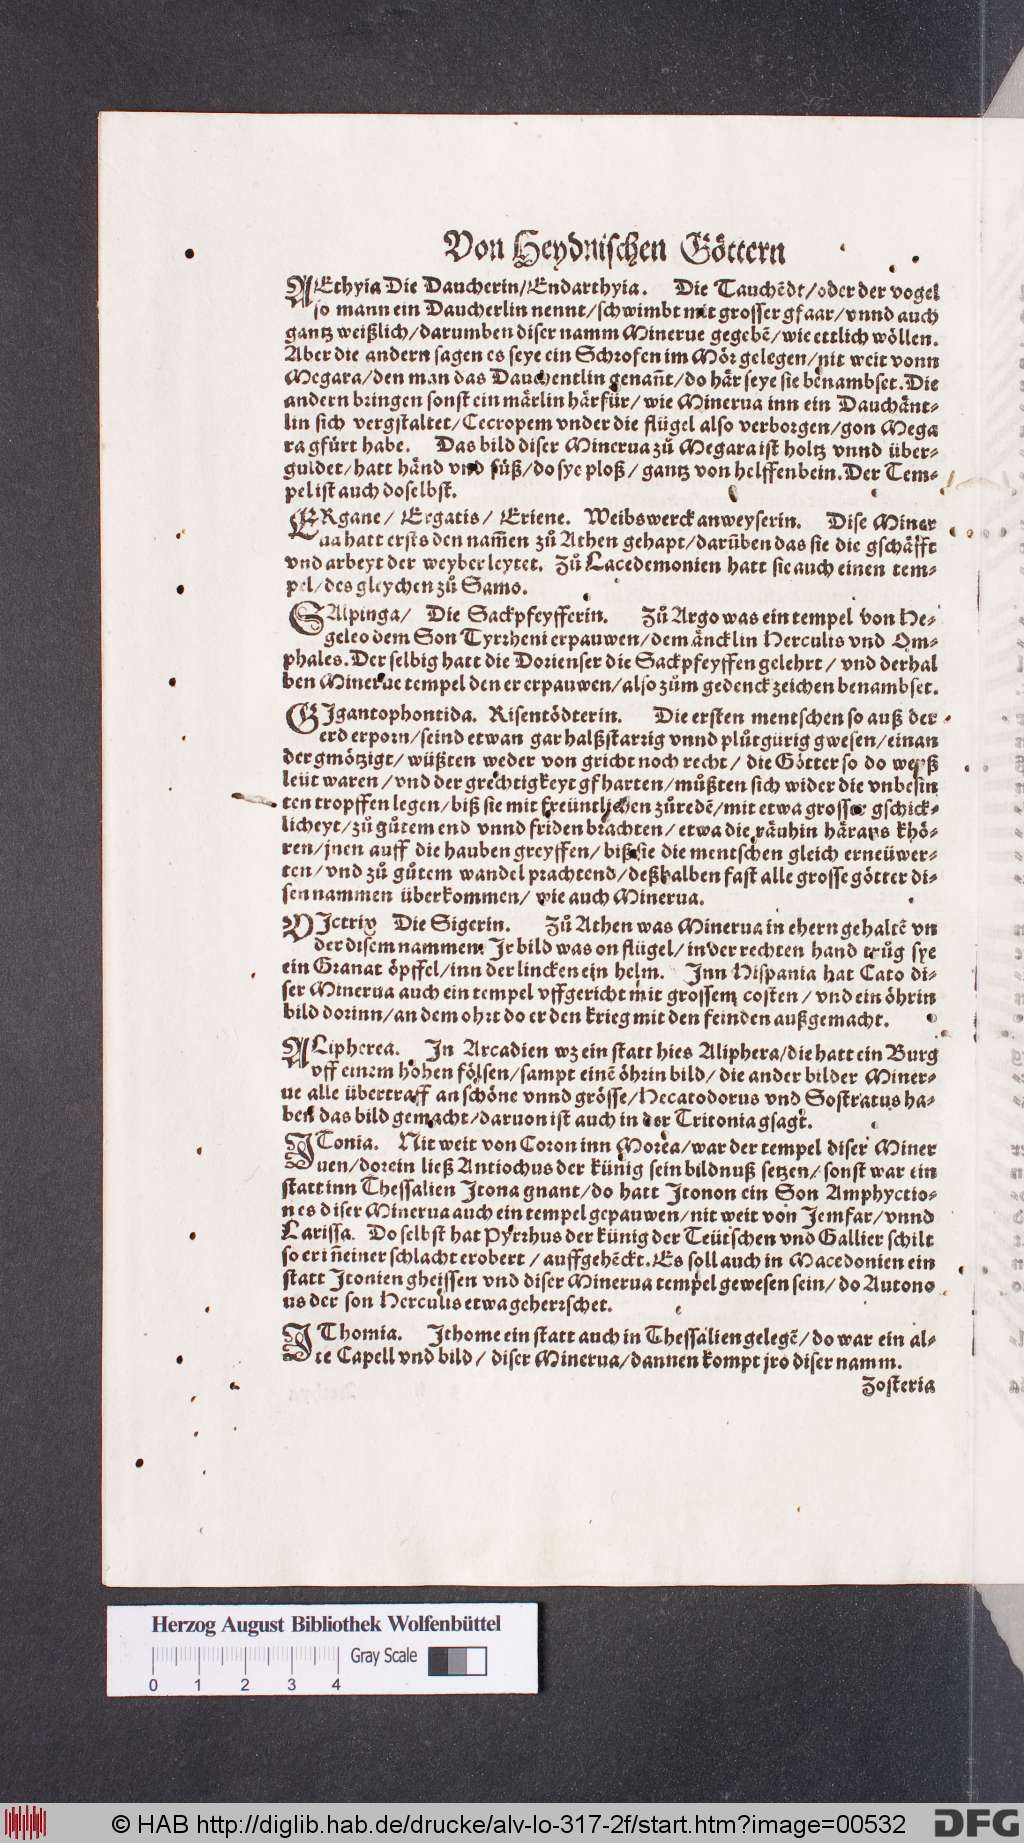 Von Heydnischen Göttern
AEthyia Die Daucherin/Endarthyia. Die Tauchēdt/oder der vogel
so mann ein Daucherlin nennt/schwimbt mit grosser gfaar/vnnd auch
gantz weißlich/darumben diser namm Minerue gegebē/wie ettlich wöllen.
Aber die andern sagen es seye ein Schrofen im Mör gelegen/nit weit vonn
Megara/den man das Dauchentlin genañt/do här seye sie benambset. Die
andern bringen sonst ein märlin härfür/ wie Minerua inn ein Dauchänt-
lin sich vergstaltet/Cecropem vnder die flügel also verborgen/gon Mega
ra gfürt habe. Das bild diser Minerua zů Megara ist holtz vnnd über-
guldet/hatt händ vnd füß/do sye ploß/ gantz von helffenbein. Der Tem-
pel ist auch doselbst.
ERgane/ Ergatis/ Eriene. Weibswerck anweyserin. Dise Miner
ua hatt ersts den nam̃en zů Athen gehapt/darũben das sie die gschäfft
vnd arbeyt der weyber leytet. Zů Lacedemonien hatt sie auch einen tem-
pel/des gleychen zů Samo.
SAlpinga/ Die Sackpfeyfferin. Zů Argo was ein tempel von He-
geleo dem Son Tyrrheni erpauwen/dem äncklin Herculis vnd Om-
phales. Der selbig hatt die Dorienser die Sackpfeyffen gelehrt/ vnd derhal
ben Minerue tempel den er erpauwen/also zům gedenckzeichen benambset.
GIgantophontida. Risentödterin. Die ersten mentschen so auß der
erd erporn/seind etwan gar halßstarrig vnnd plůtgürig gwesen/einan
der gmötzigt/ wüßten weder von gricht noch recht/ die Götter so do weyß
leüt waren/vnd der grechtigkeyt gfharten/můßten sich wider die vnbesin
ten tropffen legen/biß sie mit freüntlichen zůredē/mit etwa grosser gschick-
licheyt/zů gůtem end vnnd friden brachten/etwa die räuhin häraus khö-
ren/jnen auff die hauben greyffen/biß sie die mentschen gleich erneüwer-
ten/vnd zů gůtem wandel prachtend/deßhalben fast alle grosse götter di-
sen nammen überkommen/ wie auch Minerua.
VIctrix Die Sigerin. Zů Athen was Minerua in ehern gehaltē vn
der disem nammen. Jr bild was on flügel/in der rechten hand trůg sye
ein Granat öpffel/inn der lincken ein helm. Inn Hispania hat Cato di-
ser Minerua auch ein tempel vffgericht mit grossem costen/vnd ein öhrin
bild dorinn/an dem ohrt do er den krieg mit den feinden außgemacht.
ALipherea. In Arcadien wz ein statt hies Aliphera/die hatt ein Burg
vff einem hohen fölsen/sampt einē öhrin bild/die ander bilder Miner-
ue alle übertraff an schöne vnnd grösse/Hecatodorus vnd Sostratus ha-
ben das bild gemacht/daruon ist auch in der Tritonia gsagt.
ITonia. Nit weit von Coron inn Morea/war der tempel diser Miner
uen/dorein ließ Antiochus der künig sein bildnuß setzen/sonst war ein
statt inn Thessalien Itona gnant/do hatt Itonon ein Son Amphyctio-
nes diser Minerua auch ein tempel gepauwen/nit weit von Jemfar/vnnd
Larissa. Doselbst hat Pyrrhus der künig der Teütschen vnd Gallier schilt
so er iñ einer schlacht erobert/ auffgehēckt. Es soll auch in Macedonien ein
statt Itonien gheissen vnd diser Minerua tempel gewesen sein/do Autono
us der son Herculis etwa geherrschet.
IThomia. Ithome ein statt auch in Thessalien gelegē/do war ein al-
te Capell vnd bild/ diser Minerua/dannen kompt jro diser namm.
Zosteria
Herzog August Bibliothek Wolfenbüttel
Gray Scale
0 1 2 3 4
© HAB http://diglib.hab.de/drucke/alv-lo-317-2f/start.htm?image=00532
DFG